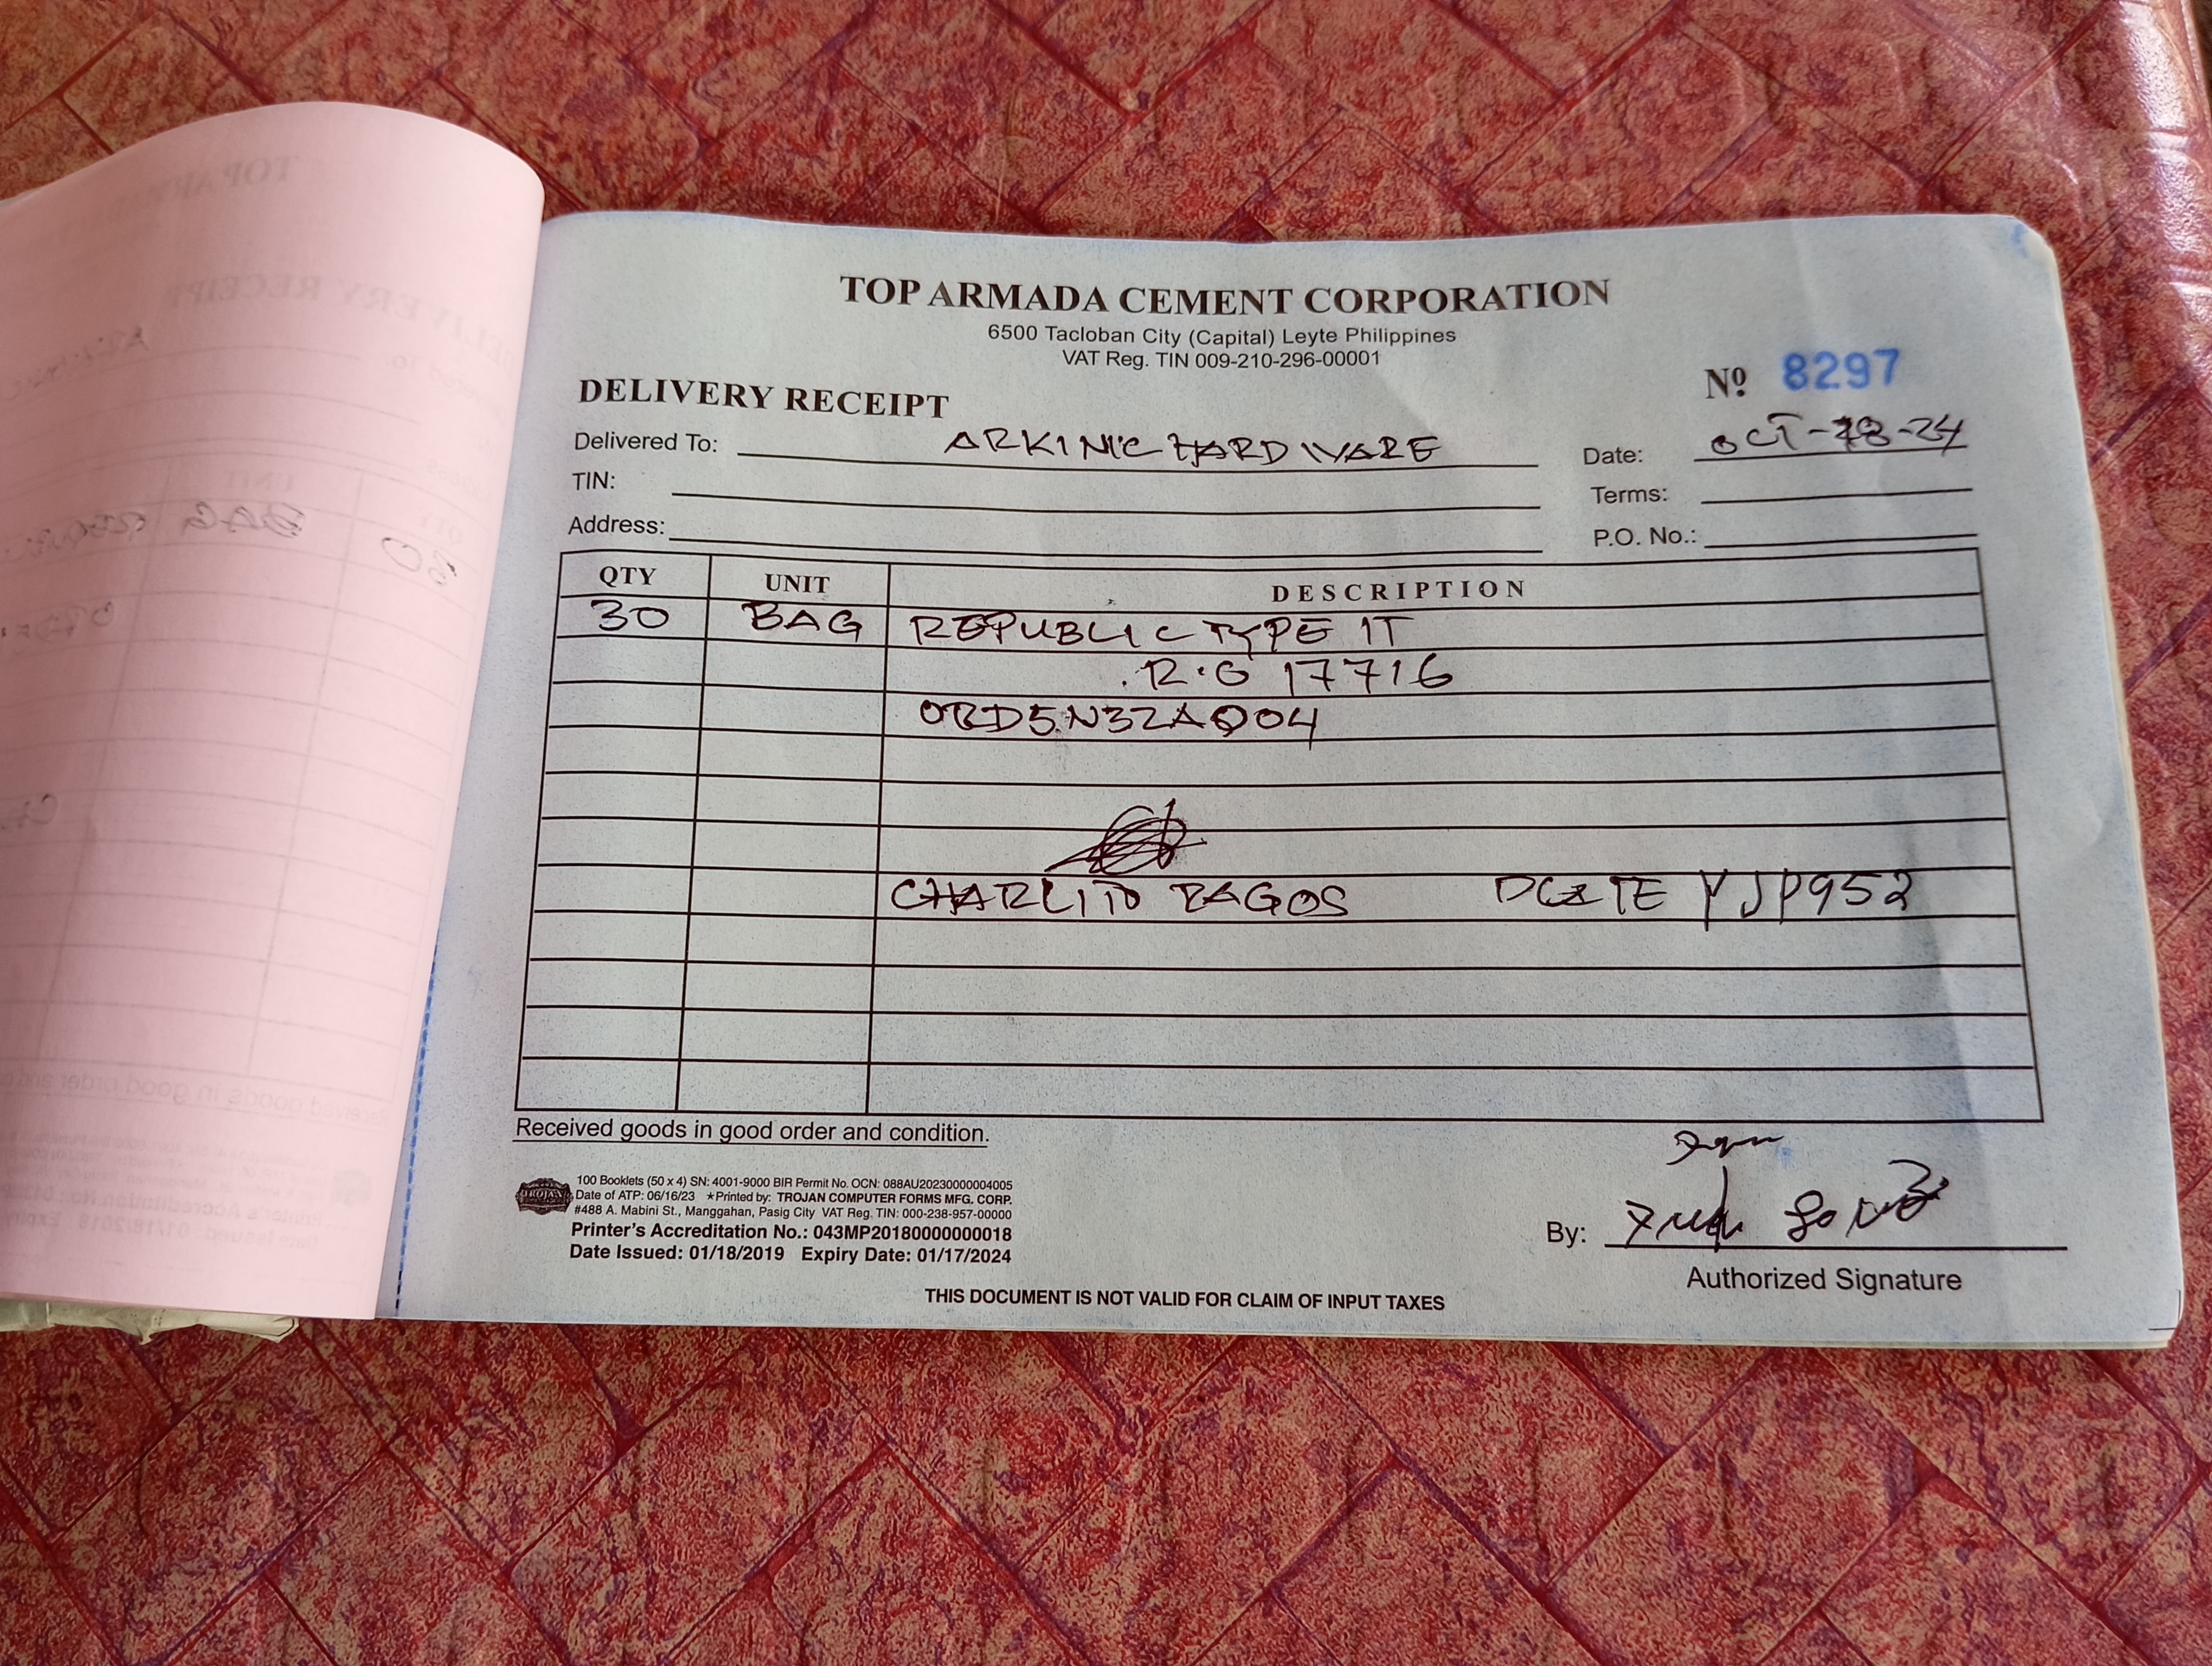 TOP ARMADA CEMENT CORPORATION
6500 Tacloban City (Capital) Leyte Philippines
VAT Reg. TIN 009-210-296-00001
Nº 8297
DELIVERY RECEIPT
Delivered To: ARKINIC HARDWARE
Date: OCT-28-24
TIN:
Terms:
Address:
P.O. No.:
QTY UNIT DESCRIPTION
30 BAG REPUBLIC TYPE 1T
R.G 17716
ORD5N32AQ04
CHARLITO BAGOS YJP952
Received goods in good order and condition.
TROJAN
100 Booklets (50 x 4) SN: 4001-9000 BIR Permit No. OCN: 088AU20230000004005
Date of ATP: 06/16/23 ★Printed by: TROJAN COMPUTER FORMS MFG. CORP.
#488 A. Mabini St., Manggahan, Pasig City VAT Reg. TIN: 000-238-957-00000
Printer's Accreditation No.: 043MP20180000000018
Date Issued: 01/18/2019 Expiry Date: 01/17/2024
By:
Authorized Signature
THIS DOCUMENT IS NOT VALID FOR CLAIM OF INPUT TAXES